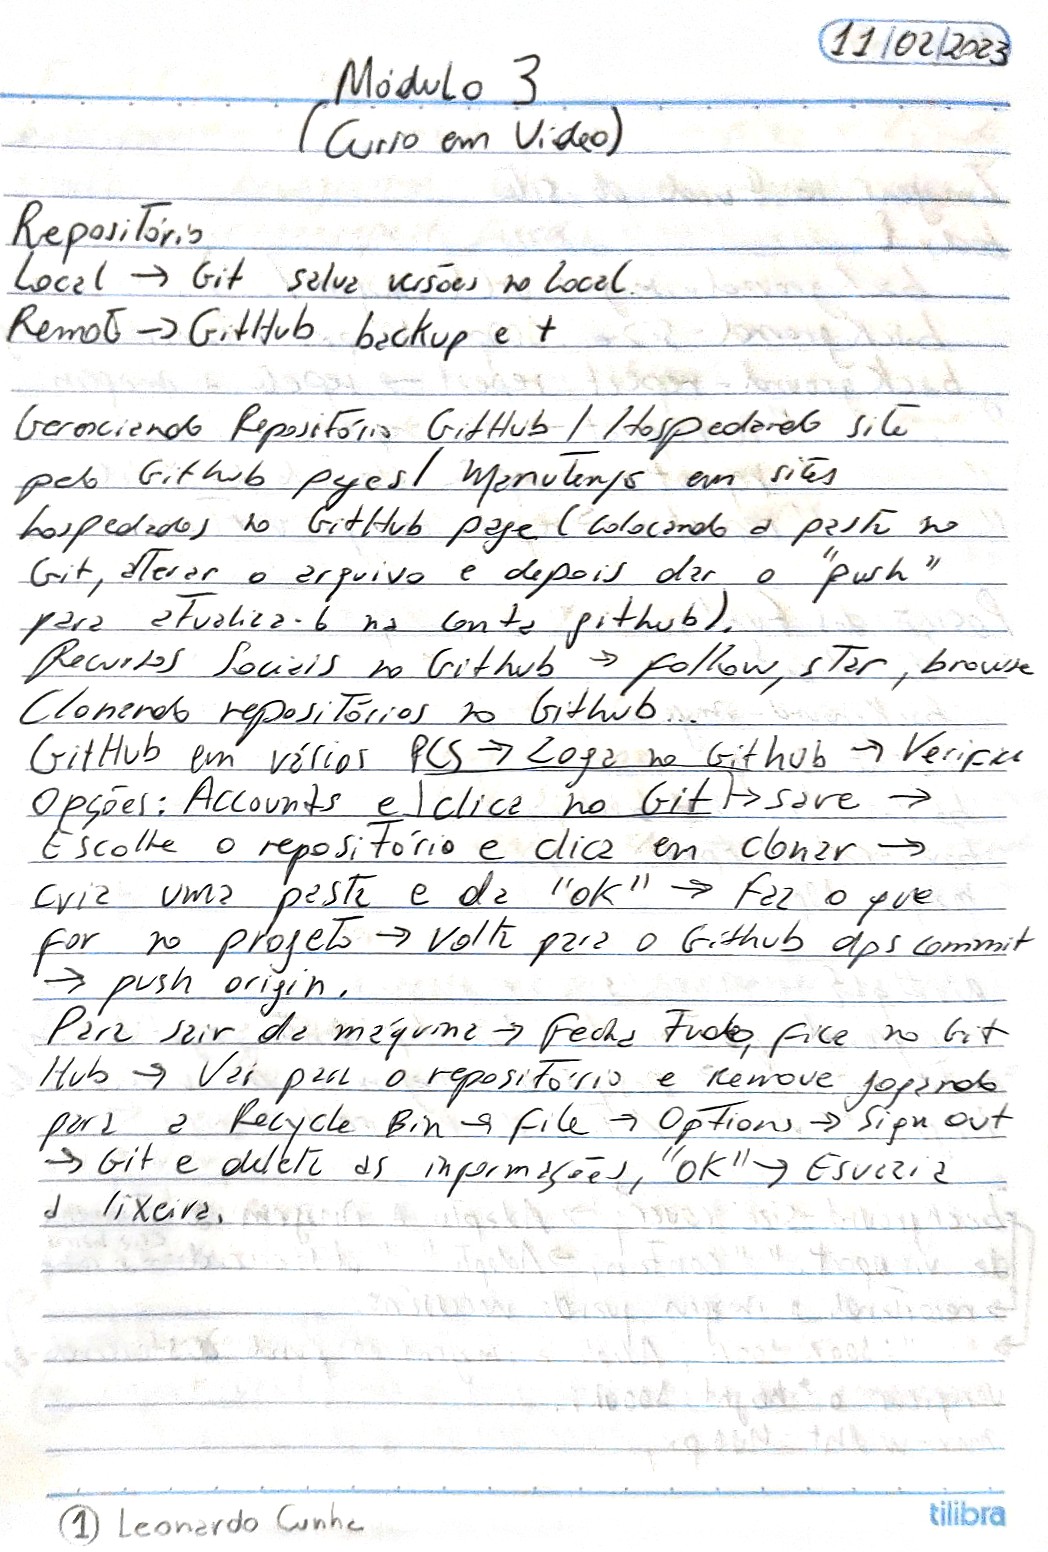 11/02/2023
Módulo 3
(Curso em Video)
Repositório
Local → Git salva versões no local.
Remoto → GitHub backup e +
Gerenciando Repositório GitHub / Hospedando site
pelo Github pages / Manutenção em sites
hospedados no GitHub page (colocando a pasta no
Git, alterar o arquivo e depois dar o "push"
para atualiza-lo na conta github).
Recursos Sociais no Github → follow, star, browse
Clonando repositórios no Github.
GitHub em vários PCS → Loga no Github → Verifica
Opções: Accounts e clica no Git → save →
Escolhe o repositório e clica em clonar →
cria uma pasta e da "OK" → Faz o que
for no projeto → Volta para o Github dps commit
→ push origin.
Para sair da máquina → Fecha Tudo, fica no Git
Hub → Vai para o repositório e Remove jogando
para a Recycle Bin → File → Options → Sign out
→ Git e delete as informações, "OK" → Esvazia
a lixeira.
1 Leonardo Cunha
tilibra